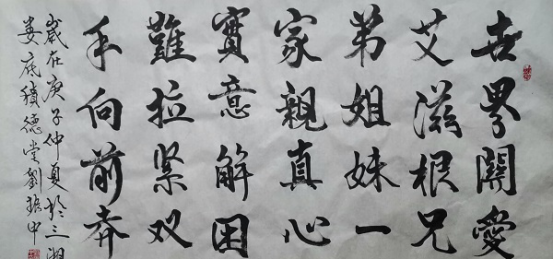 世界關愛
艾滋根兄
弟姐妹一
家親真心
實意解困
難拉緊双
手向前奔
歲在庚子仲夏於三湘
娄底積德堂劉振中